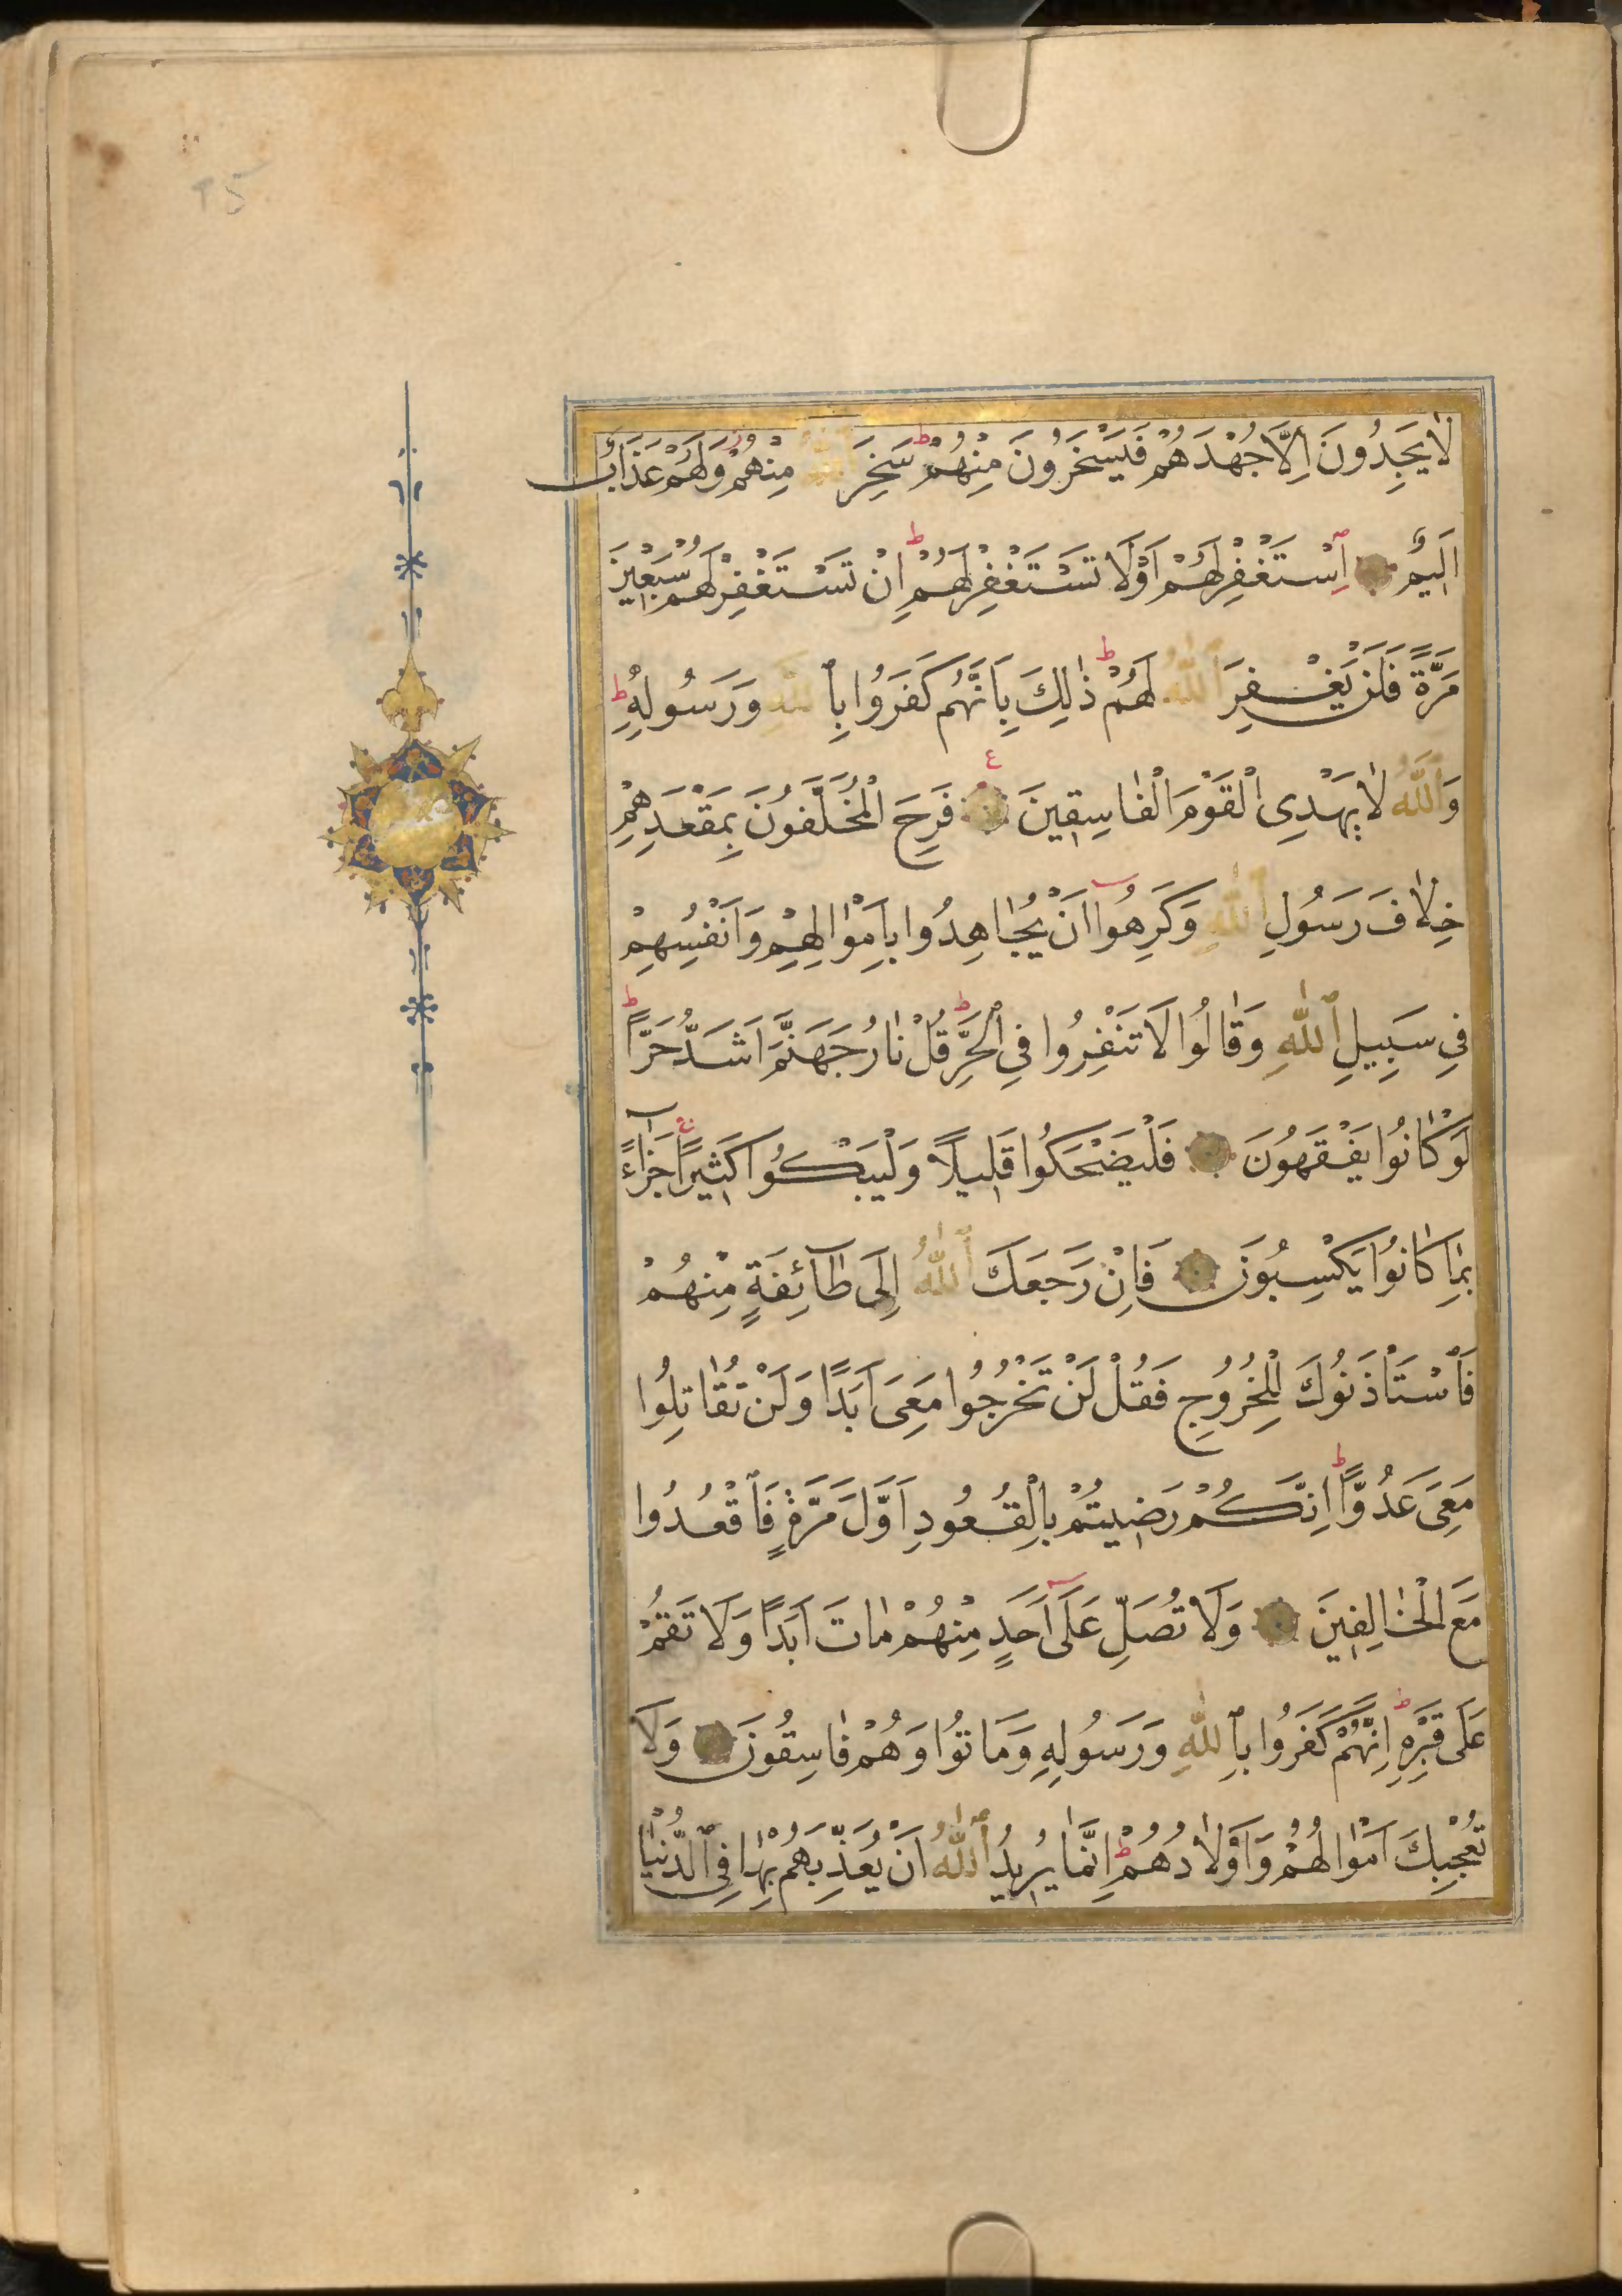 لَا يَجِدُونَ اِلَّا جُهْدَهُمْ فَيَسْخَرُونَ مِنْهُمْ ط سَخِرَ اللّٰهُ مِنْهُمْ ز وَلَهُمْ عَذَابٌ
اَلِيمٌ اِسْتَغْفِرْ لَهُمْ اَوْ لَا تَسْتَغْفِرْ لَهُمْ ط اِنْ تَسْتَغْفِرْ لَهُمْ سَبْعِينَ
مَرَّةً فَلَنْ يَغْفِرَ ٱللّٰهُ لَهُمْ ط ذٰلِكَ بِاَنَّهُمْ كَفَرُوا بِٱللّٰهِ وَرَسُولِهِ ط
وَٱللّٰهُ لَا يَهْدِى الْقَوْمَ الْفَاسِقِينَ ع فَرِحَ الْمُخَلَّفُونَ بِمَقْعَدِهِمْ
خِلَافَ رَسُولِ ٱللّٰهِ وَكَرِهُوا اَنْ يُجَاهِدُوا بِاَمْوَالِهِمْ وَاَنْفُسِهِمْ
فِى سَبِيلِ ٱللّٰهِ وَقَالُوا لَا تَنْفِرُوا فِى ٱلْحَرِّ ط قُلْ نَارُ جَهَنَّمَ اَشَدُّ حَرًّا ط
لَوْ كَانُوا يَفْقَهُونَ فَلْيَضْحَكُوا قَلِيلًا وَلْيَبْكُوا كَثِيرًا ج جَزَآءً
بِمَا كَانُوا يَكْسِبُونَ فَاِنْ رَجَعَكَ ٱللّٰهُ اِلَى طَآئِفَةٍ مِنْهُمْ
فَٱسْتَاْذَنُوكَ لِلْخُرُوجِ فَقُلْ لَنْ تَخْرُجُوا مَعِىَ اَبَدًا وَلَنْ تُقَاتِلُوا
مَعِىَ عَدُوًّا ط اِنَّكُمْ رَضِيتُمْ بِالْقُعُودِ اَوَّلَ مَرَّةٍ فَٱقْعُدُوا
مَعَ الْخَالِفِينَ وَلَا تُصَلِّ عَلَى اَحَدٍ مِنْهُمْ مَاتَ اَبَدًا وَلَا تَقُمْ
عَلَى قَبْرِهِ ط اِنَّهُمْ كَفَرُوا بِٱللّٰهِ وَرَسُولِهِ وَمَاتُوا وَهُمْ فَاسِقُونَ وَلَا
تُعْجِبْكَ اَمْوَالُهُمْ وَاَوْلَادُهُمْ ط اِنَّمَا يُرِيدُ ٱللّٰهُ اَنْ يُعَذِّبَهُمْ بِهَا فِى ٱلدُّنْيَا